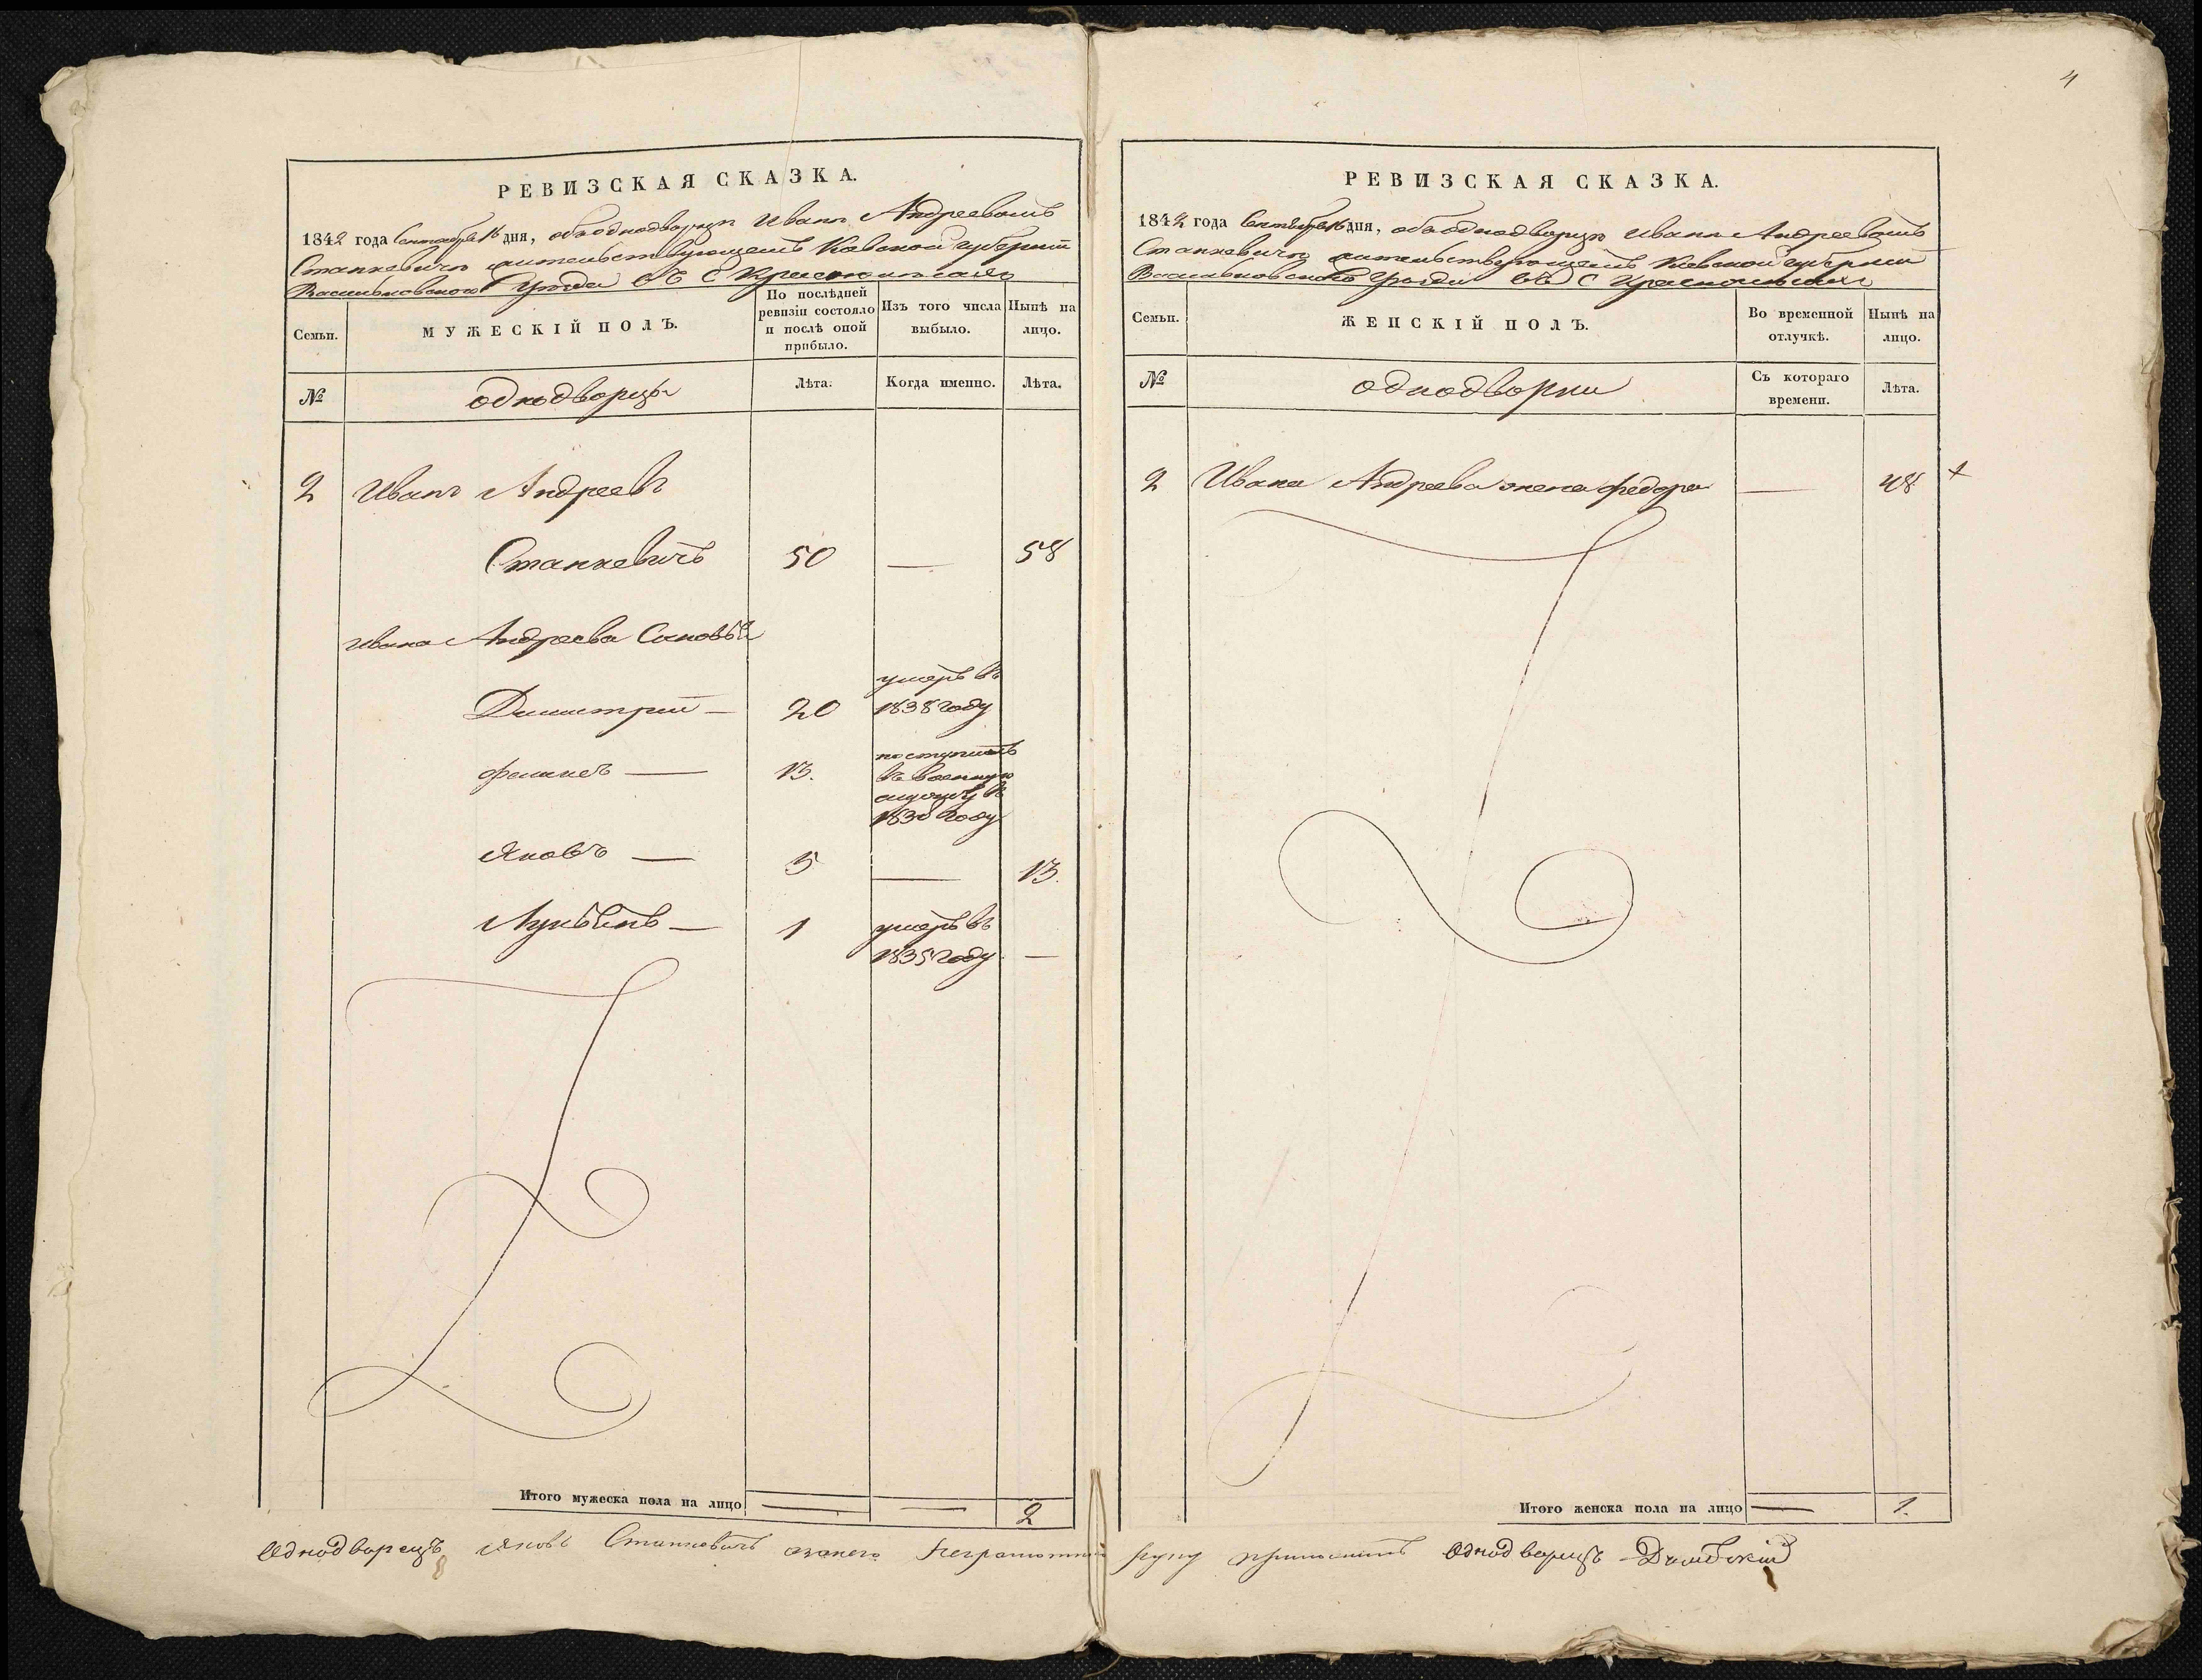 4
РЕВИЗСКАЯ СКАЗКА.
1842 года Сентября 16 дня, объ однодворцѣ Иванѣ Андреевомъ
Станкевичѣ жительствующемъ Киевской губерніи
Васильковского Уѣзда въ С
Семьи.
МУЖЕСКІЙ ПОЛЪ.
По послѣдней ревизіи состояло и послѣ оной прибыло.
Изъ того числа выбыло.
Нынѣ на лицо.
№
однодворцы
Лѣта.
Когда именно.
Лѣта.
2 Иванъ Андреевъ
Станкевичъ 50 — 58
Ивана Андреева Сыновья
Димитрий — 20 умеръ въ 1838 году
13. поступилъ въ военную службу въ
Яковъ — 5 — 13.
1 умеръ въ 1835 году —
Итого мужеска пола на лицо — — 2
РЕВИЗСКАЯ СКАЗКА.
1842 года Сентября 16 дня, объ однодворцѣ Иванѣ Андреевомъ
Станкевичѣ жительствующемъ Киевской губерніи
Васильковского Уѣзда въ С
Семьи.
ЖЕНСКІЙ ПОЛЪ.
Во временной отлучкѣ.
Нынѣ на лицо.
№
однодворки
Съ котораго времени.
Лѣта.
2 Ивана Андреева жена Федора — 48 +
Итого женска пола на лицо — 1.
Однодворецъ Яковъ Станкевичъ неграмотный руку однодворецъ